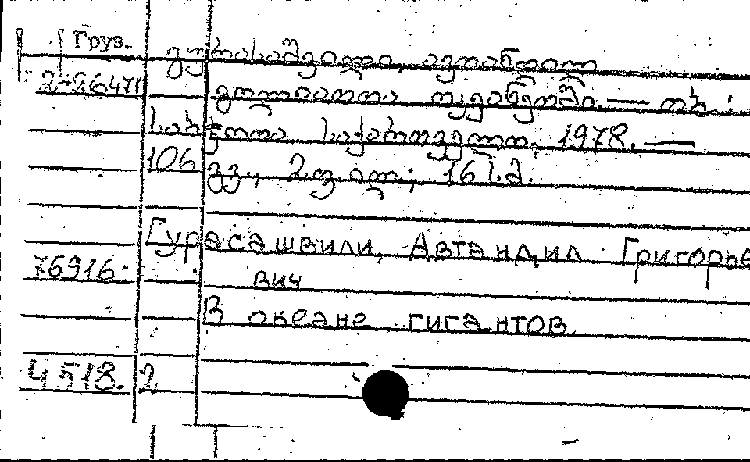 Груз. გურასაშვილი, ავთანდილ
2-26471 გოლიათთა ოკეანეში. — თბ.:
საბჭოთა საქართველო, 1978. —
106 გვ., 2 ფ. ილ.; 16 ს.მ.
Гурасашвили, Автандил Григорье
76916. вич
В океане гигантов
4518. 2